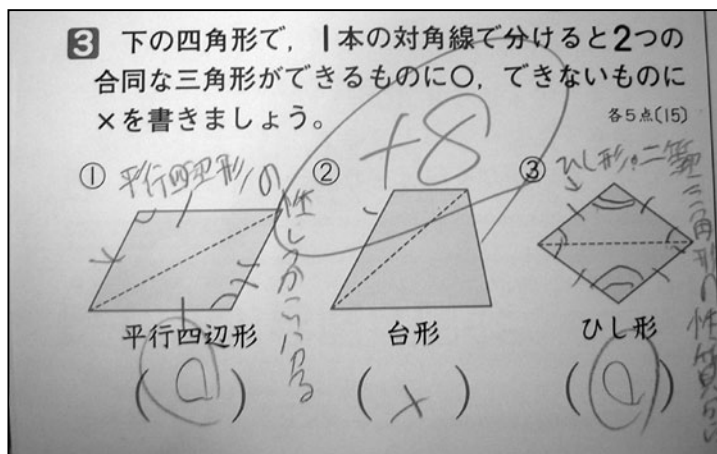 3 下の四角形で，1本の対角線で分けると2つの
合同な三角形ができるものに○，できないものに
×を書きましょう。 各5点〔15〕
① 平行四辺形の
性しつからわかる
② +8
③ ひし形の二等辺三角形の性質から
平行四辺形 台形 ひし形
(○) (×) (○)